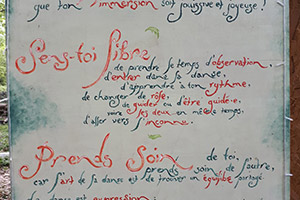 que ton immersion soit jouissive et joyeuse !
Sens-toi libre
de prendre le temps d'observation,
d'entrer dans la danse,
d'apprendre à ton rythme,
de changer de rôle,
de guider ou d'être guidé·e,
voire les deux en même temps,
d'aller vers l'inconnu.
Prends Soin de toi,
prends soin de l'autre,
car l'art de la danse est de trouver un équilibre partagé
La danse est expression